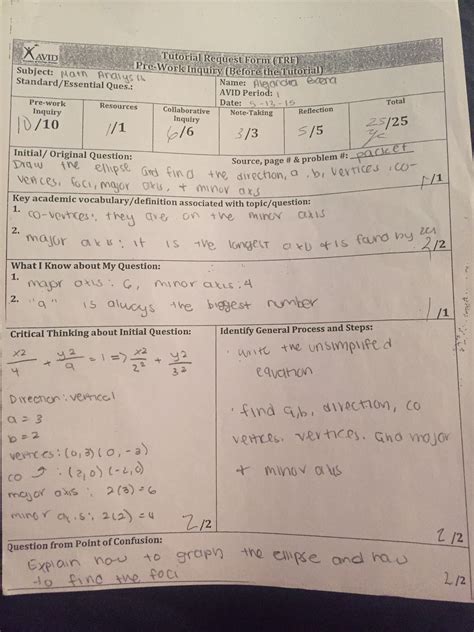 AVID
Tutorial Request Form (TRF)
Pre-Work Inquiry (Before the Tutorial)
Subject: Math Analysis
Name: Alejandra
Standard/Essential Ques.:
AVID Period: 1
Date: 5-13-15
Pre-work Inquiry
Resources
Collaborative Inquiry
Note-Taking
Reflection
Total
10/10
1/1
6/6
3/3
5/5
25/25
Initial/ Original Question:
Source, page # & problem #: packet
Draw the ellipse and find the direction, a, b, vertices, co-
vertices, foci, major axis, + minor axis
1/1
Key academic vocabulary/definition associated with topic/question:
1. co-vertices: they are on the minor axis
2. major axis: it is the longest axis + is found by 2(a)
2/2
What I Know about My Question:
1. major axis: 6, minor axis: 4
2. "a" is always the biggest number
1/1
Critical Thinking about Initial Question:
x2/4 + y2/9 = 1 => x2/2² + y2/3²
Direction: vertical
a = 3
b = 2
vertices: (0,3) (0,-3)
co ⤴ : (2,0) (-2,0)
major axis: 2(3) = 6
minor a.s: 2(2) = 4
2/2
Identify General Process and Steps:
· write the unsimplified
equation
· find a,b, direction, co
vertices, vertices, and major
+ minor axis
2/2
Question from Point of Confusion:
Explain how to graph the ellipse and how
to find the foci
2/2